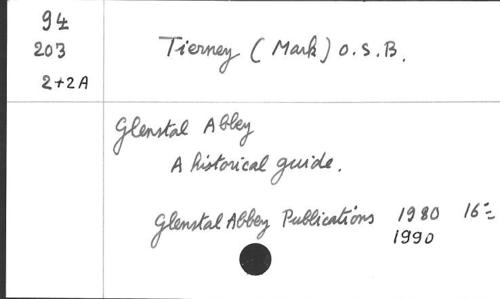 94
203
2+2A
Tierney (Mark) O.S.B.
Glenstal Abbey
A historical guide.
Glenstal Abbey Publications 1980 16=
1990